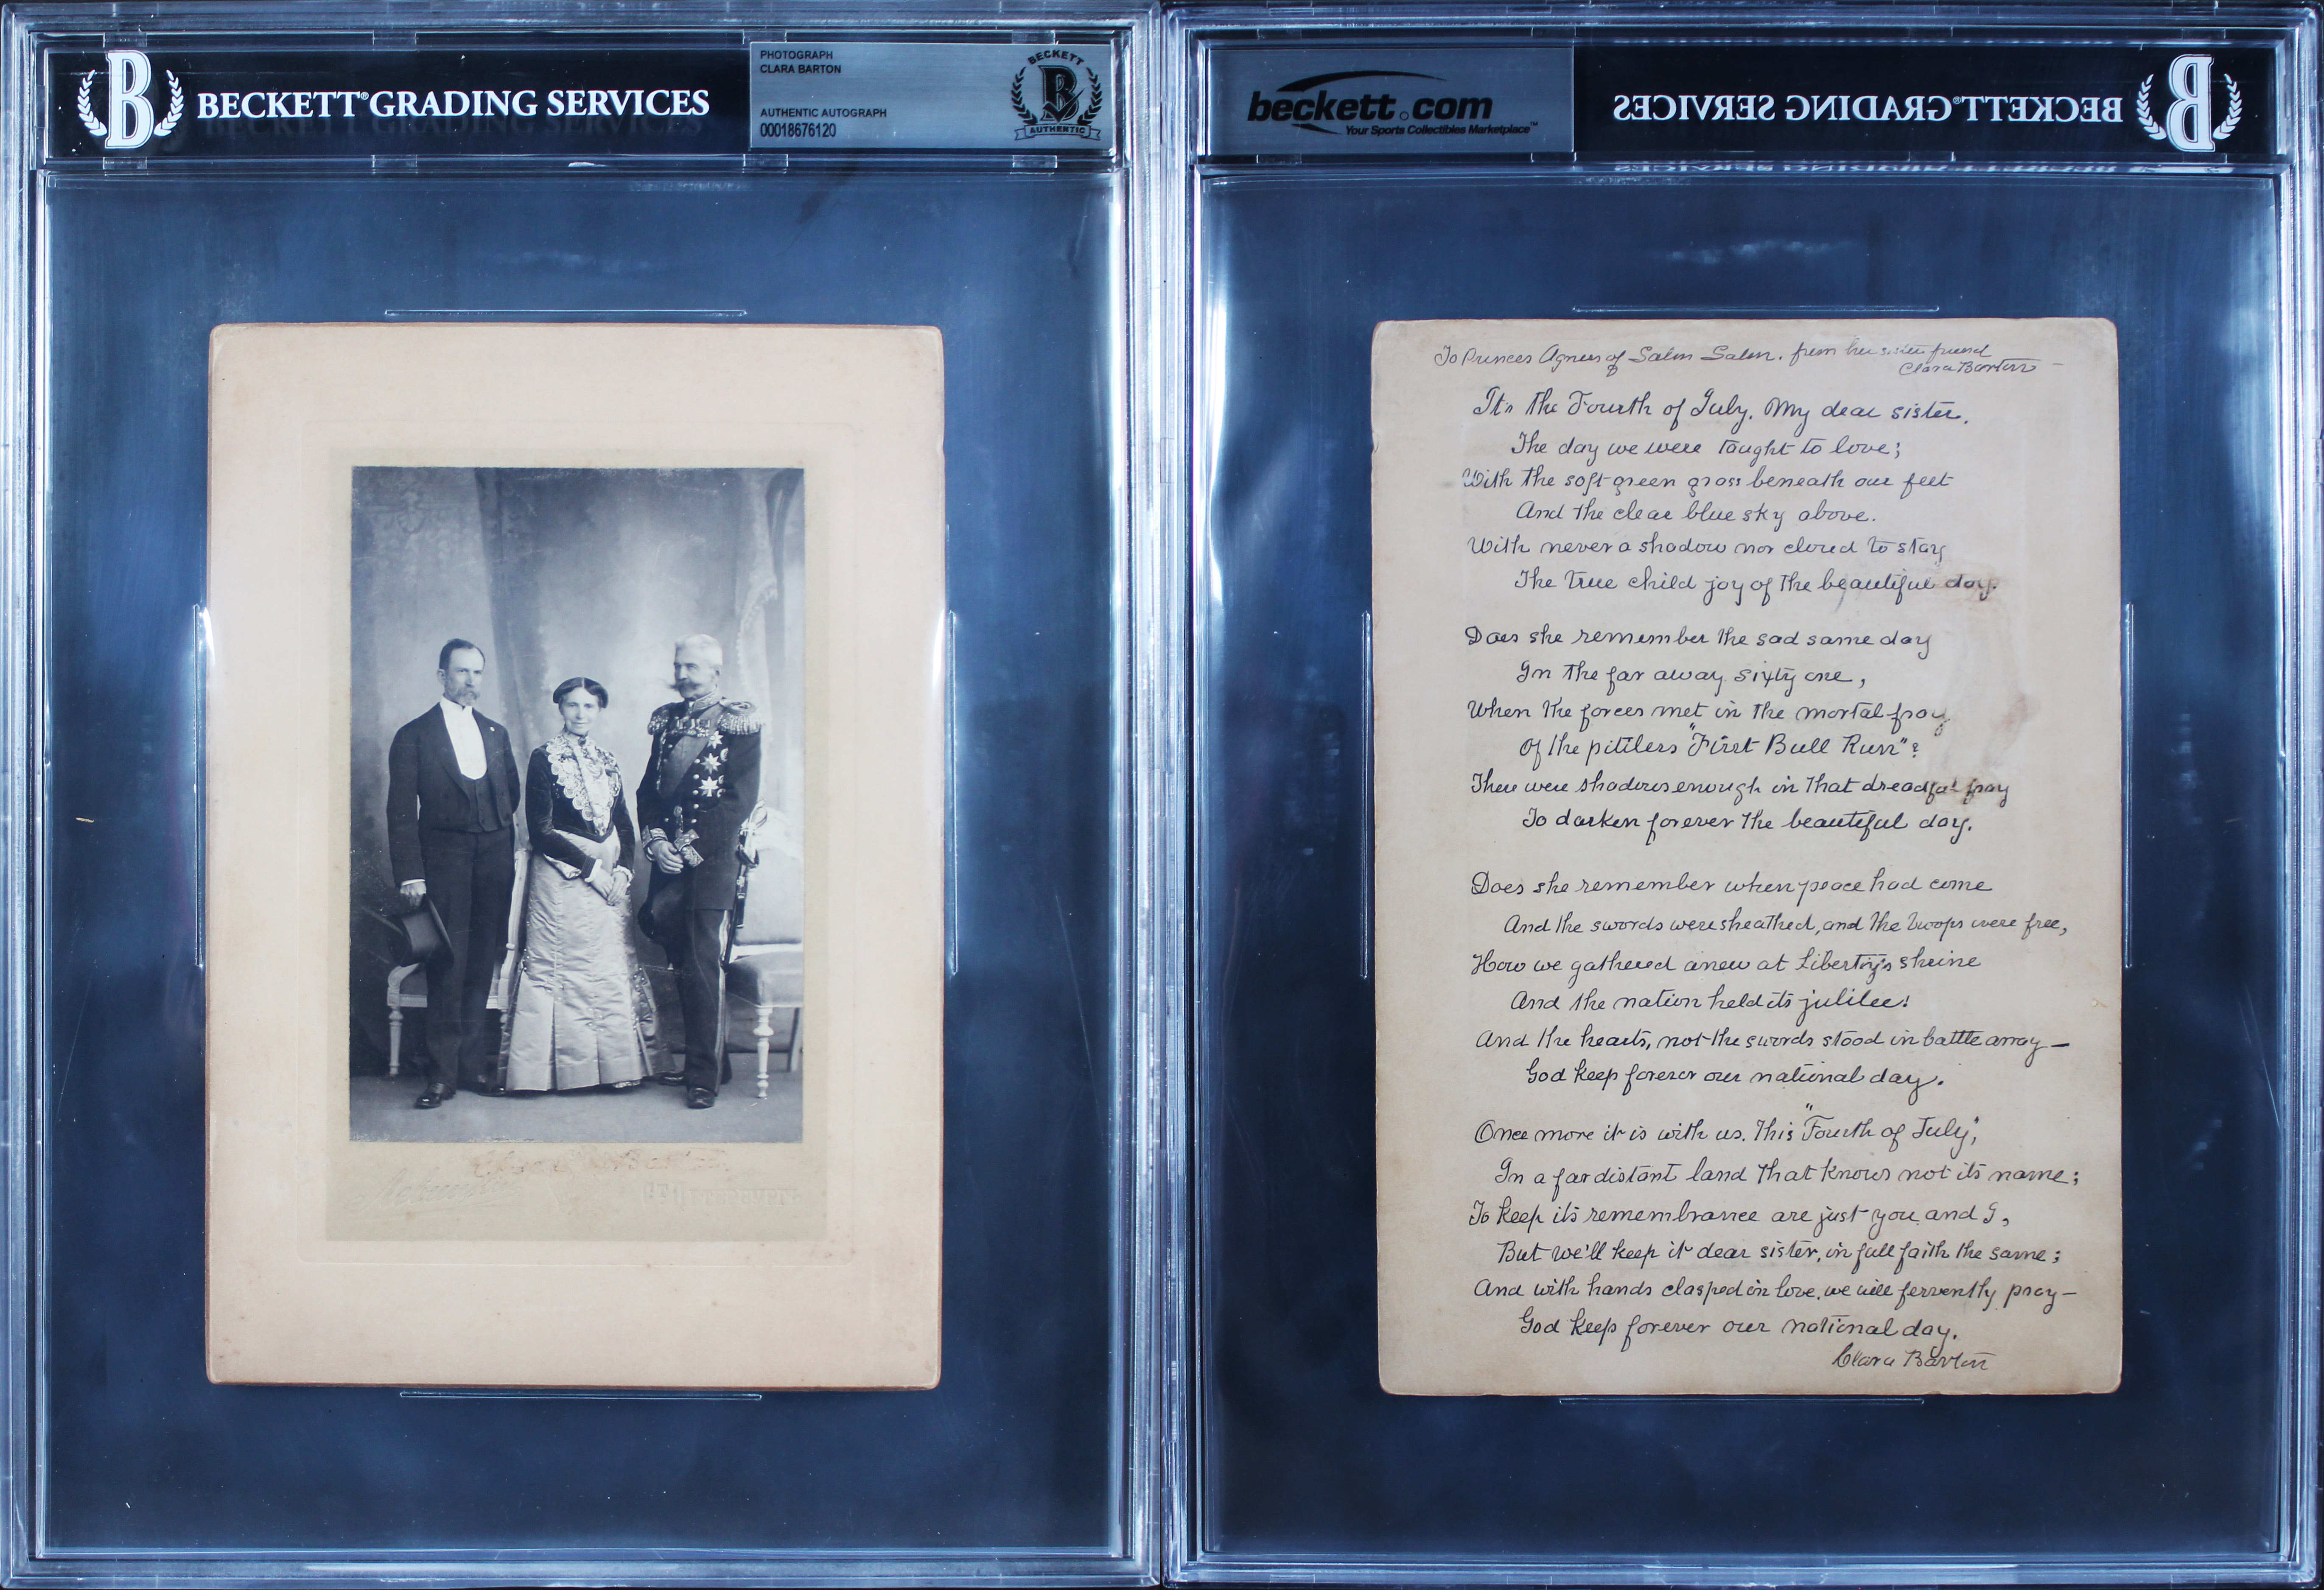 BECKETT® GRADING SERVICES
PHOTOGRAPH
CLARA BARTON
AUTHENTIC AUTOGRAPH
00018676120
BECKETT
B
AUTHENTIC
beckett.com
Your Sports Collectibles Marketplace™
BECKETT® GRADING SERVICES
To Princes Agnes of Salm Salm. from her sister friend
Clara Barton
It's the Fourth of July. My dear sister.
The day we were taught to love;
With the soft green grass beneath our feet
And the clear blue sky above.
With never a shadow nor cloud to stay
The true child joy of the beautiful day.
Does she remember the sad same day
In the far away sixty one,
When the forces met in the mortal fray
Of the pitiless "First Bull Run"?
There were shadows enough in that dreadful fray
To darken forever the beautiful day.
Does she remember when peace had come
And the swords were sheathed, and the troops were free,
How we gathered anew at Liberty's shrine
And the nation held its jubilee!
And the hearts, not the swords stood in battle array—
God keep forever our national day.
Once more it is with us. This "Fourth of July",
In a far distant land that knows not its name;
To keep its remembrance are just you and I,
But we'll keep it dear sister, in full faith the same;
And with hands clasped in love, we will fervently pray—
God keep forever our national day.
Clara Barton